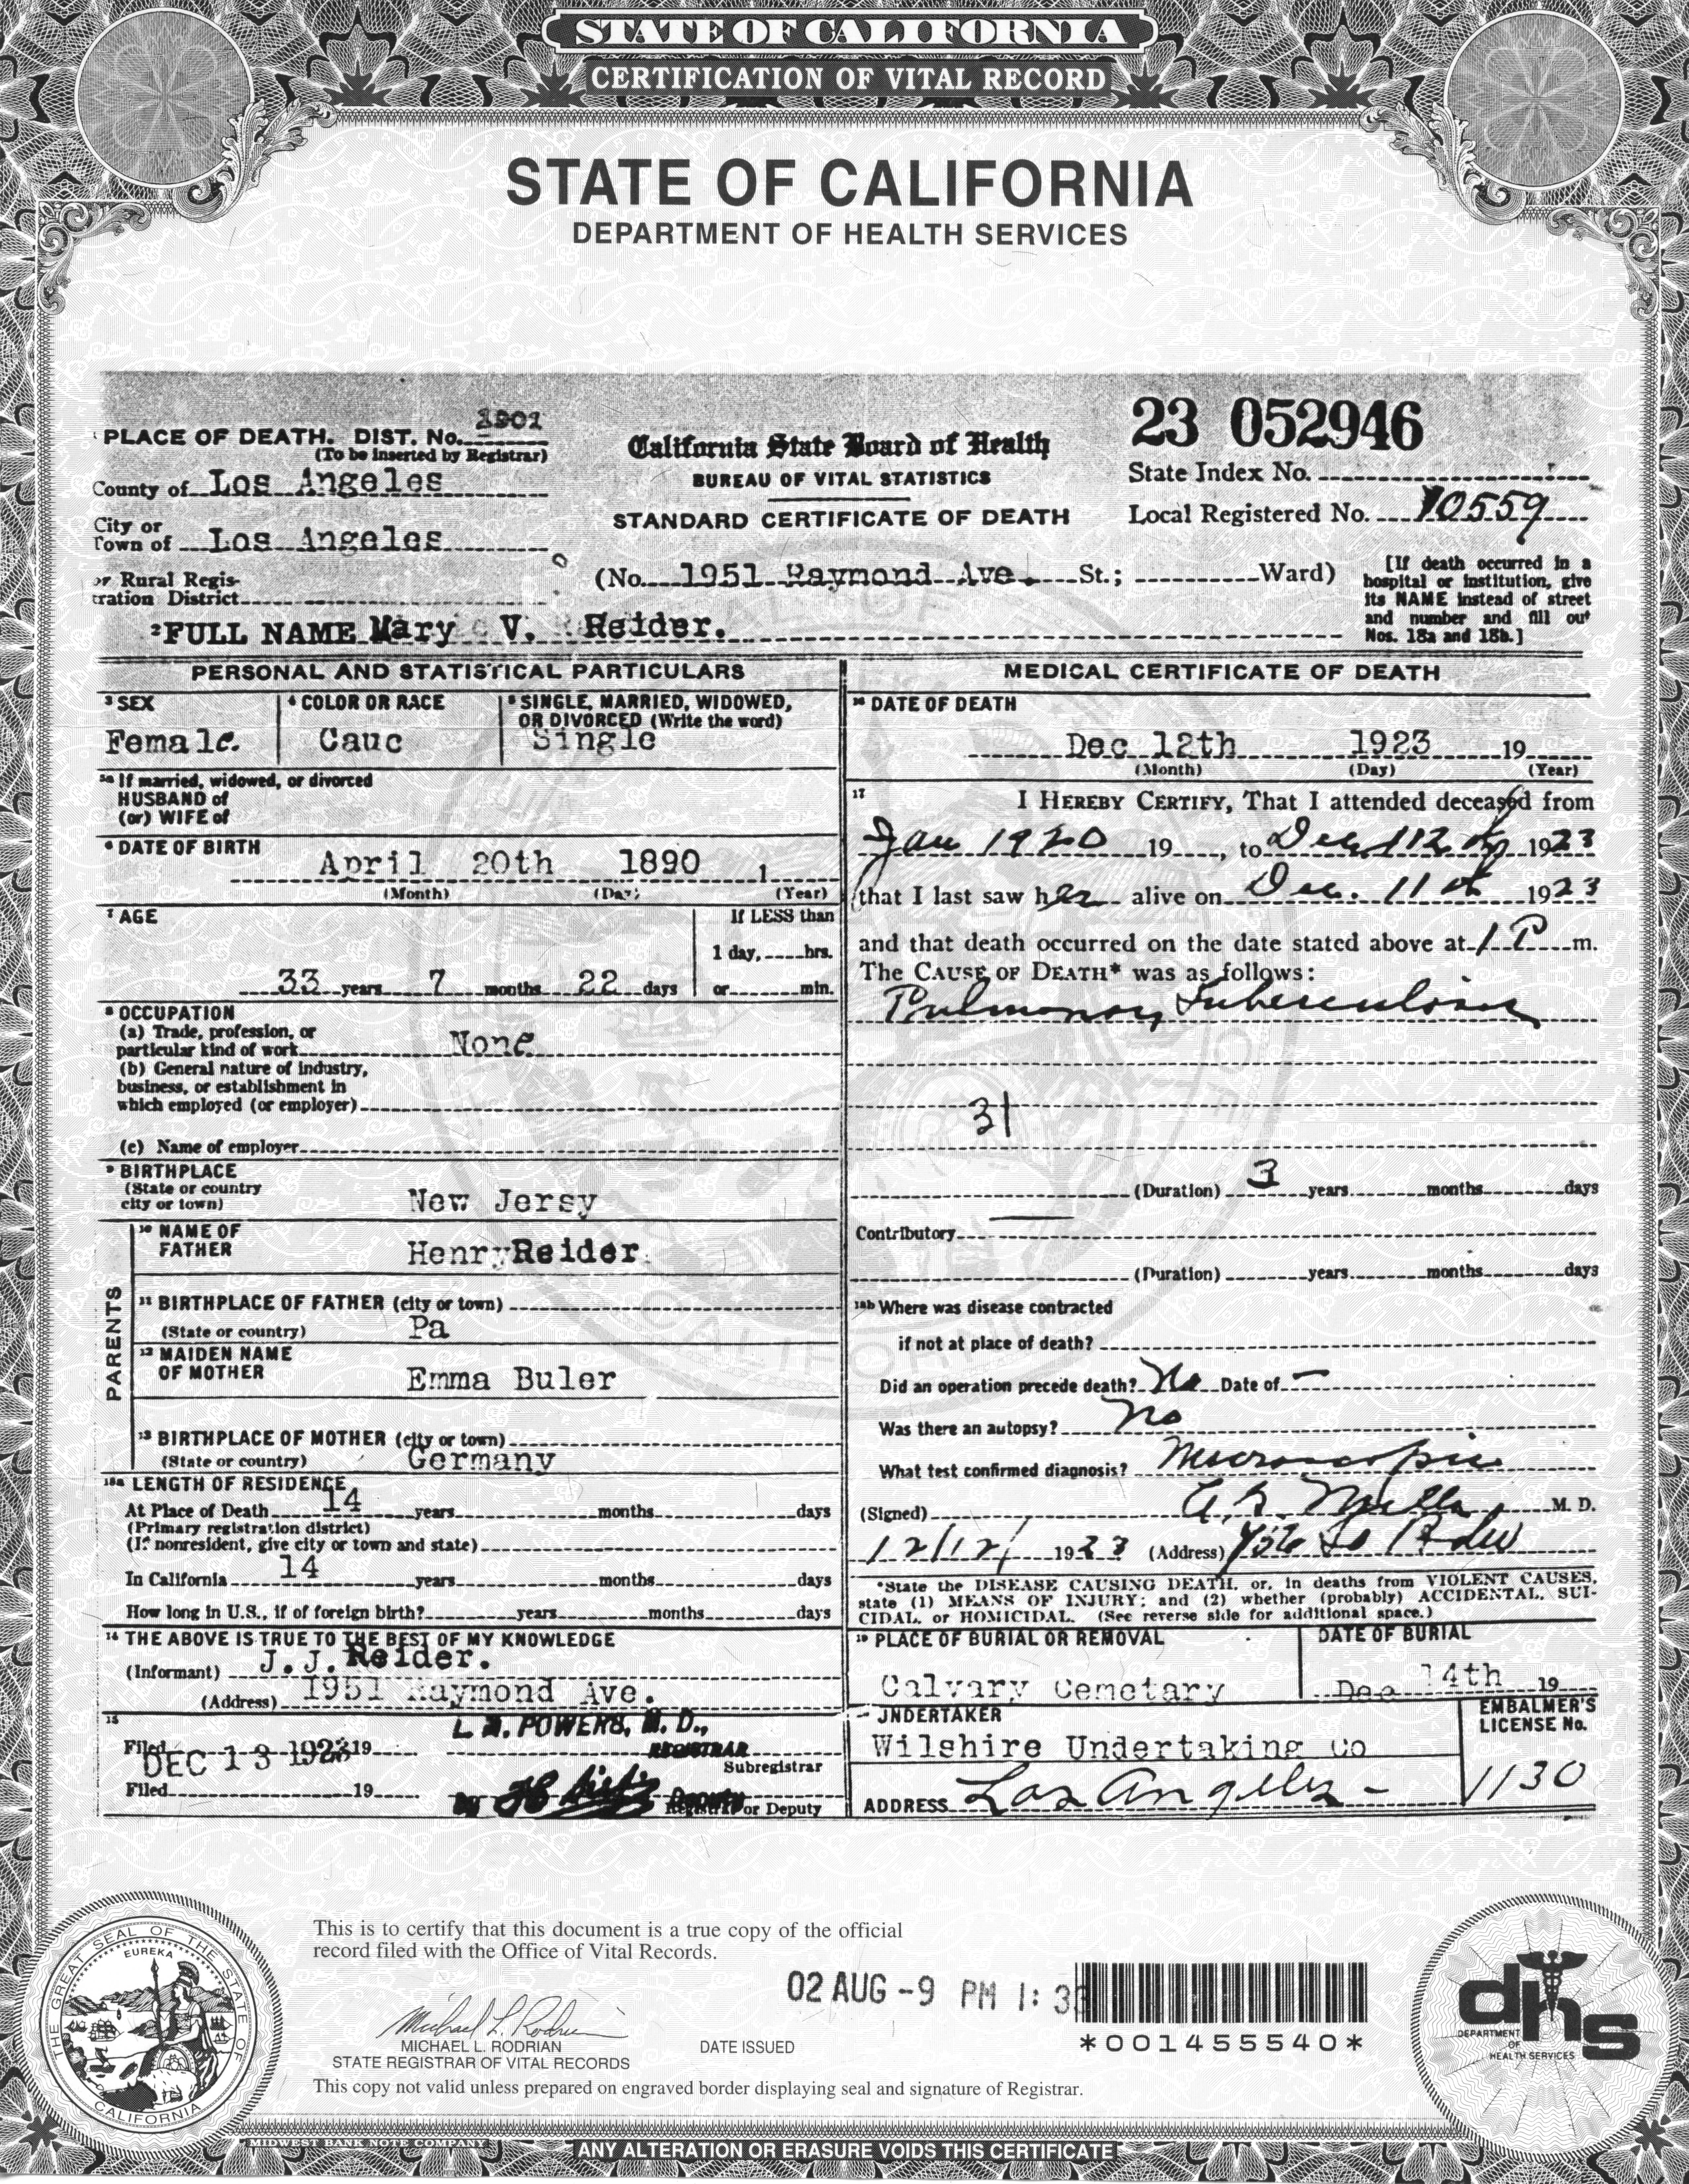 STATE OF CALIFORNIA
CERTIFICATION OF VITAL RECORD
STATE OF CALIFORNIA
DEPARTMENT OF HEALTH SERVICES
PLACE OF DEATH. DIST. No. 1901
(To be inserted by Registrar)
County of Los Angeles
City or
Town of Los Angeles
or Rural Regis-
tration District
California State Board of Health
BUREAU OF VITAL STATISTICS
STANDARD CERTIFICATE OF DEATH
(No. 1951 Raymond Ave. St.; Ward)
23 052946
State Index No.
Local Registered No. 10559
[If death occurred in a
hospital or institution, give
its NAME instead of street
and number and fill out
Nos. 18a and 18b.]
2 FULL NAME Mary V. Reider.
PERSONAL AND STATISTICAL PARTICULARS
3 SEX
Female.
4 COLOR OR RACE
Cauc
5 SINGLE, MARRIED, WIDOWED,
OR DIVORCED (Write the word)
Single
5a If married, widowed, or divorced
HUSBAND of
(or) WIFE of
6 DATE OF BIRTH
April 20th 1890 1
(Month) (Day) (Year)
7 AGE
If LESS than
1 day, hrs.
33 years 7 months 22 days or min.
8 OCCUPATION
(a) Trade, profession, or
particular kind of work None
(b) General nature of industry,
business, or establishment in
which employed (or employer)
(c) Name of employer
9 BIRTHPLACE
(State or country
city or town) New Jersy
PARENTS
10 NAME OF
FATHER Henry Reider
11 BIRTHPLACE OF FATHER (city or town)
(State or country) Pa
12 MAIDEN NAME
OF MOTHER Emma Buler
13 BIRTHPLACE OF MOTHER (city or town)
(State or country) Germany
18a LENGTH OF RESIDENCE
At Place of Death 14 years months days
(Primary registration district)
(If nonresident, give city or town and state)
In California 14 years months days
How long in U.S., if of foreign birth? years months days
14 THE ABOVE IS TRUE TO THE BEST OF MY KNOWLEDGE
(Informant) J. J. Reider.
(Address) 1951 Raymond Ave.
15
Filed DEC 13 1923 19
L. M. POWERS, M. D.,
REGISTRAR
Subregistrar
Filed 19
DEPUTY
Registrar or Deputy
MEDICAL CERTIFICATE OF DEATH
16 DATE OF DEATH
Dec 12th 1923 19
(Month) (Day) (Year)
17 I HEREBY CERTIFY, That I attended deceased from
Jan 1920 19, to Dec 12 1923
that I last saw her alive on Dec. 11th 1923
and that death occurred on the date stated above at 1 P m.
The CAUSE OF DEATH* was as follows:
Pulmonary Tuberculosis
31
(Duration) 3 years months days
Contributory
(Duration) years months days
18b Where was disease contracted
if not at place of death?
Did an operation precede death? No Date of —
Was there an autopsy? no
What test confirmed diagnosis? Microscopic
(Signed) M. D.
12/12/ 1923 (Address)
*State the DISEASE CAUSING DEATH, or, in deaths from VIOLENT CAUSES,
state (1) MEANS OF INJURY; and (2) whether (probably) ACCIDENTAL, SUI-
CIDAL, or HOMICIDAL. (See reverse side for additional space.)
19 PLACE OF BURIAL OR REMOVAL
Calvary Cemetary
DATE OF BURIAL
Dec 14th 19
UNDERTAKER
Wilshire Undertaking Co
ADDRESS Los Angeles -
EMBALMER'S
LICENSE No.
1130
This is to certify that this document is a true copy of the official
record filed with the Office of Vital Records.
02 AUG -9 PM 1: 3
*001455540*
Michael L. Rodrian
MICHAEL L. RODRIAN
STATE REGISTRAR OF VITAL RECORDS
DATE ISSUED
This copy not valid unless prepared on engraved border displaying seal and signature of Registrar.
THE GREAT SEAL OF THE STATE OF CALIFORNIA
EUREKA
dhs
DEPARTMENT
OF
HEALTH SERVICES
MIDWEST BANK NOTE COMPANY
ANY ALTERATION OR ERASURE VOIDS THIS CERTIFICATE